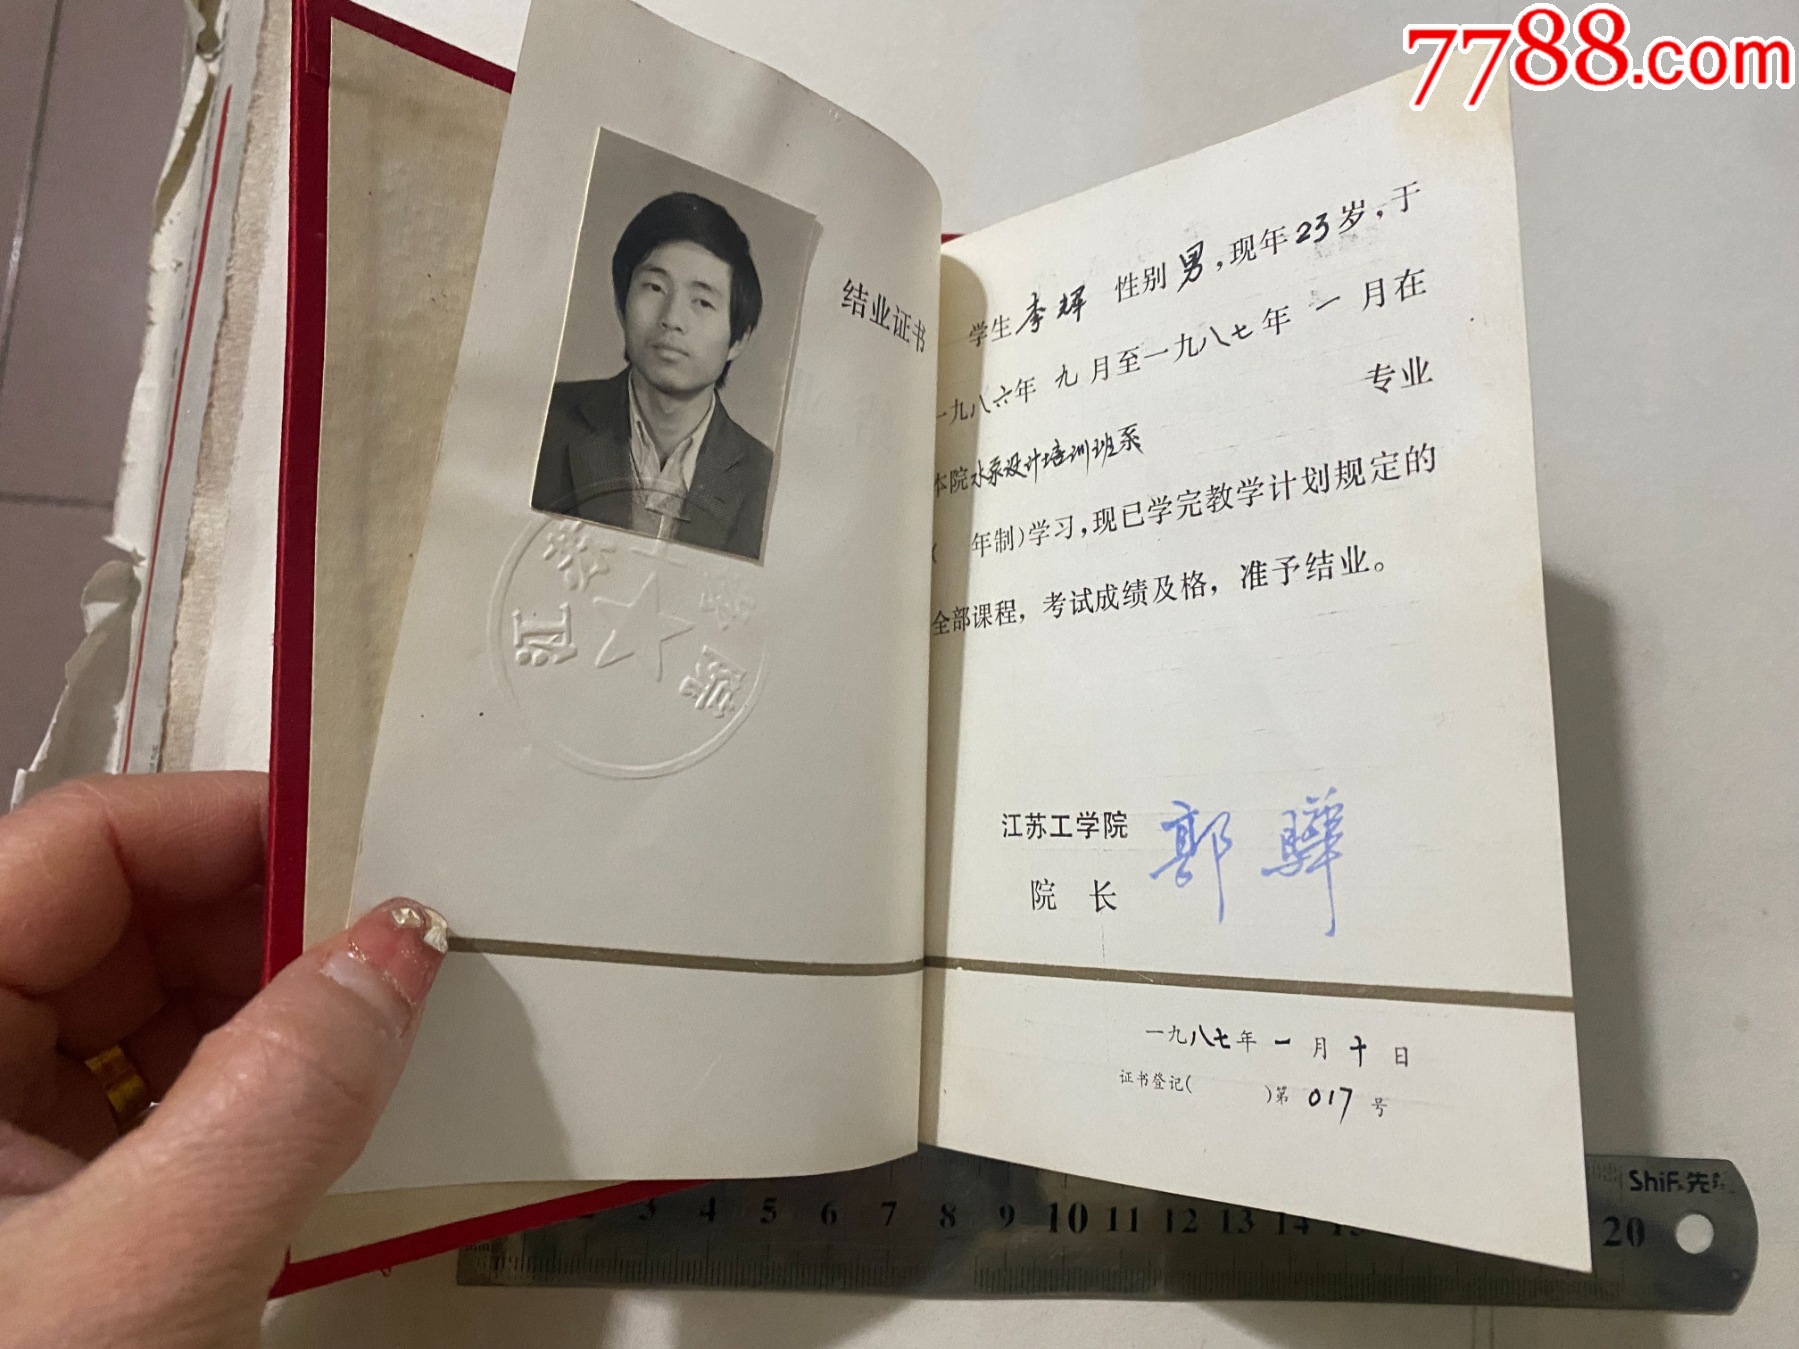 7788.com
结业证书
学生李辉 性别男，现年23岁，于
一九八六年 九 月至一九八七年 一 月在
本院水泵设计培训班系 专业
( 年制)学习，现已学完教学计划规定的
全部课程，考试成绩及格，准予结业。
江苏工学院
院 长 郭骅
一九八七年 一 月 十 日
证书登记( )第 017 号
江苏工学院
2 3 4 5 6 7 8 9 10 11 12 13 14 15 20
ShiF 先